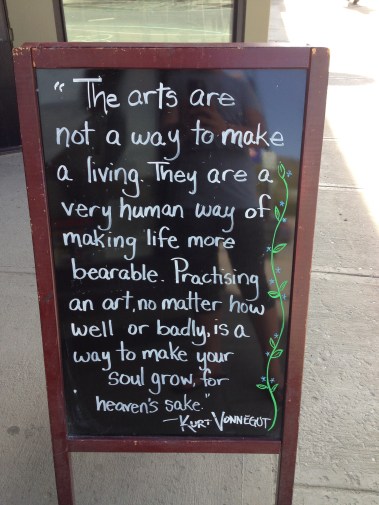 "The arts are
not a way to make
a living. They are a
very human way of
making life more
bearable. Practising
an art, no matter how
well or badly, is a
way to make your
soul grow, for
heaven's sake."
—KURT VONNEGUT